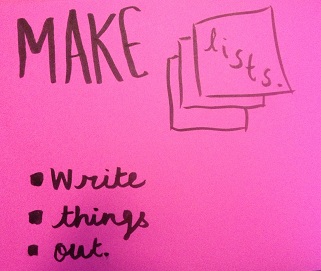 MAKE lists.
• Write
• things
• out.